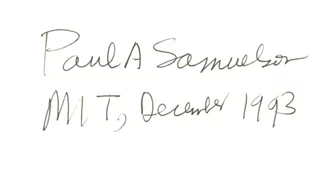 Paul A Samuelson
MIT, December 1993